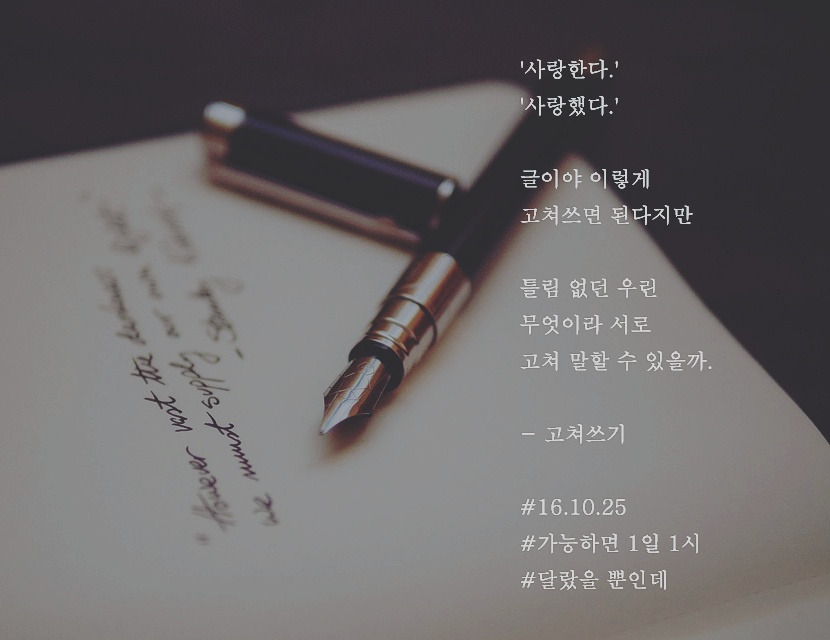 '사랑한다.'
'사랑했다.'
글이야 이렇게
고쳐쓰면 된다지만
틀림 없던 우린
무엇이라 서로
고쳐 말할 수 있을까.
- 고쳐쓰기
#16.10.25
#가능하면 1일 1시
#달랐을 뿐인데
"However vast the darkness
we must supply our own light"